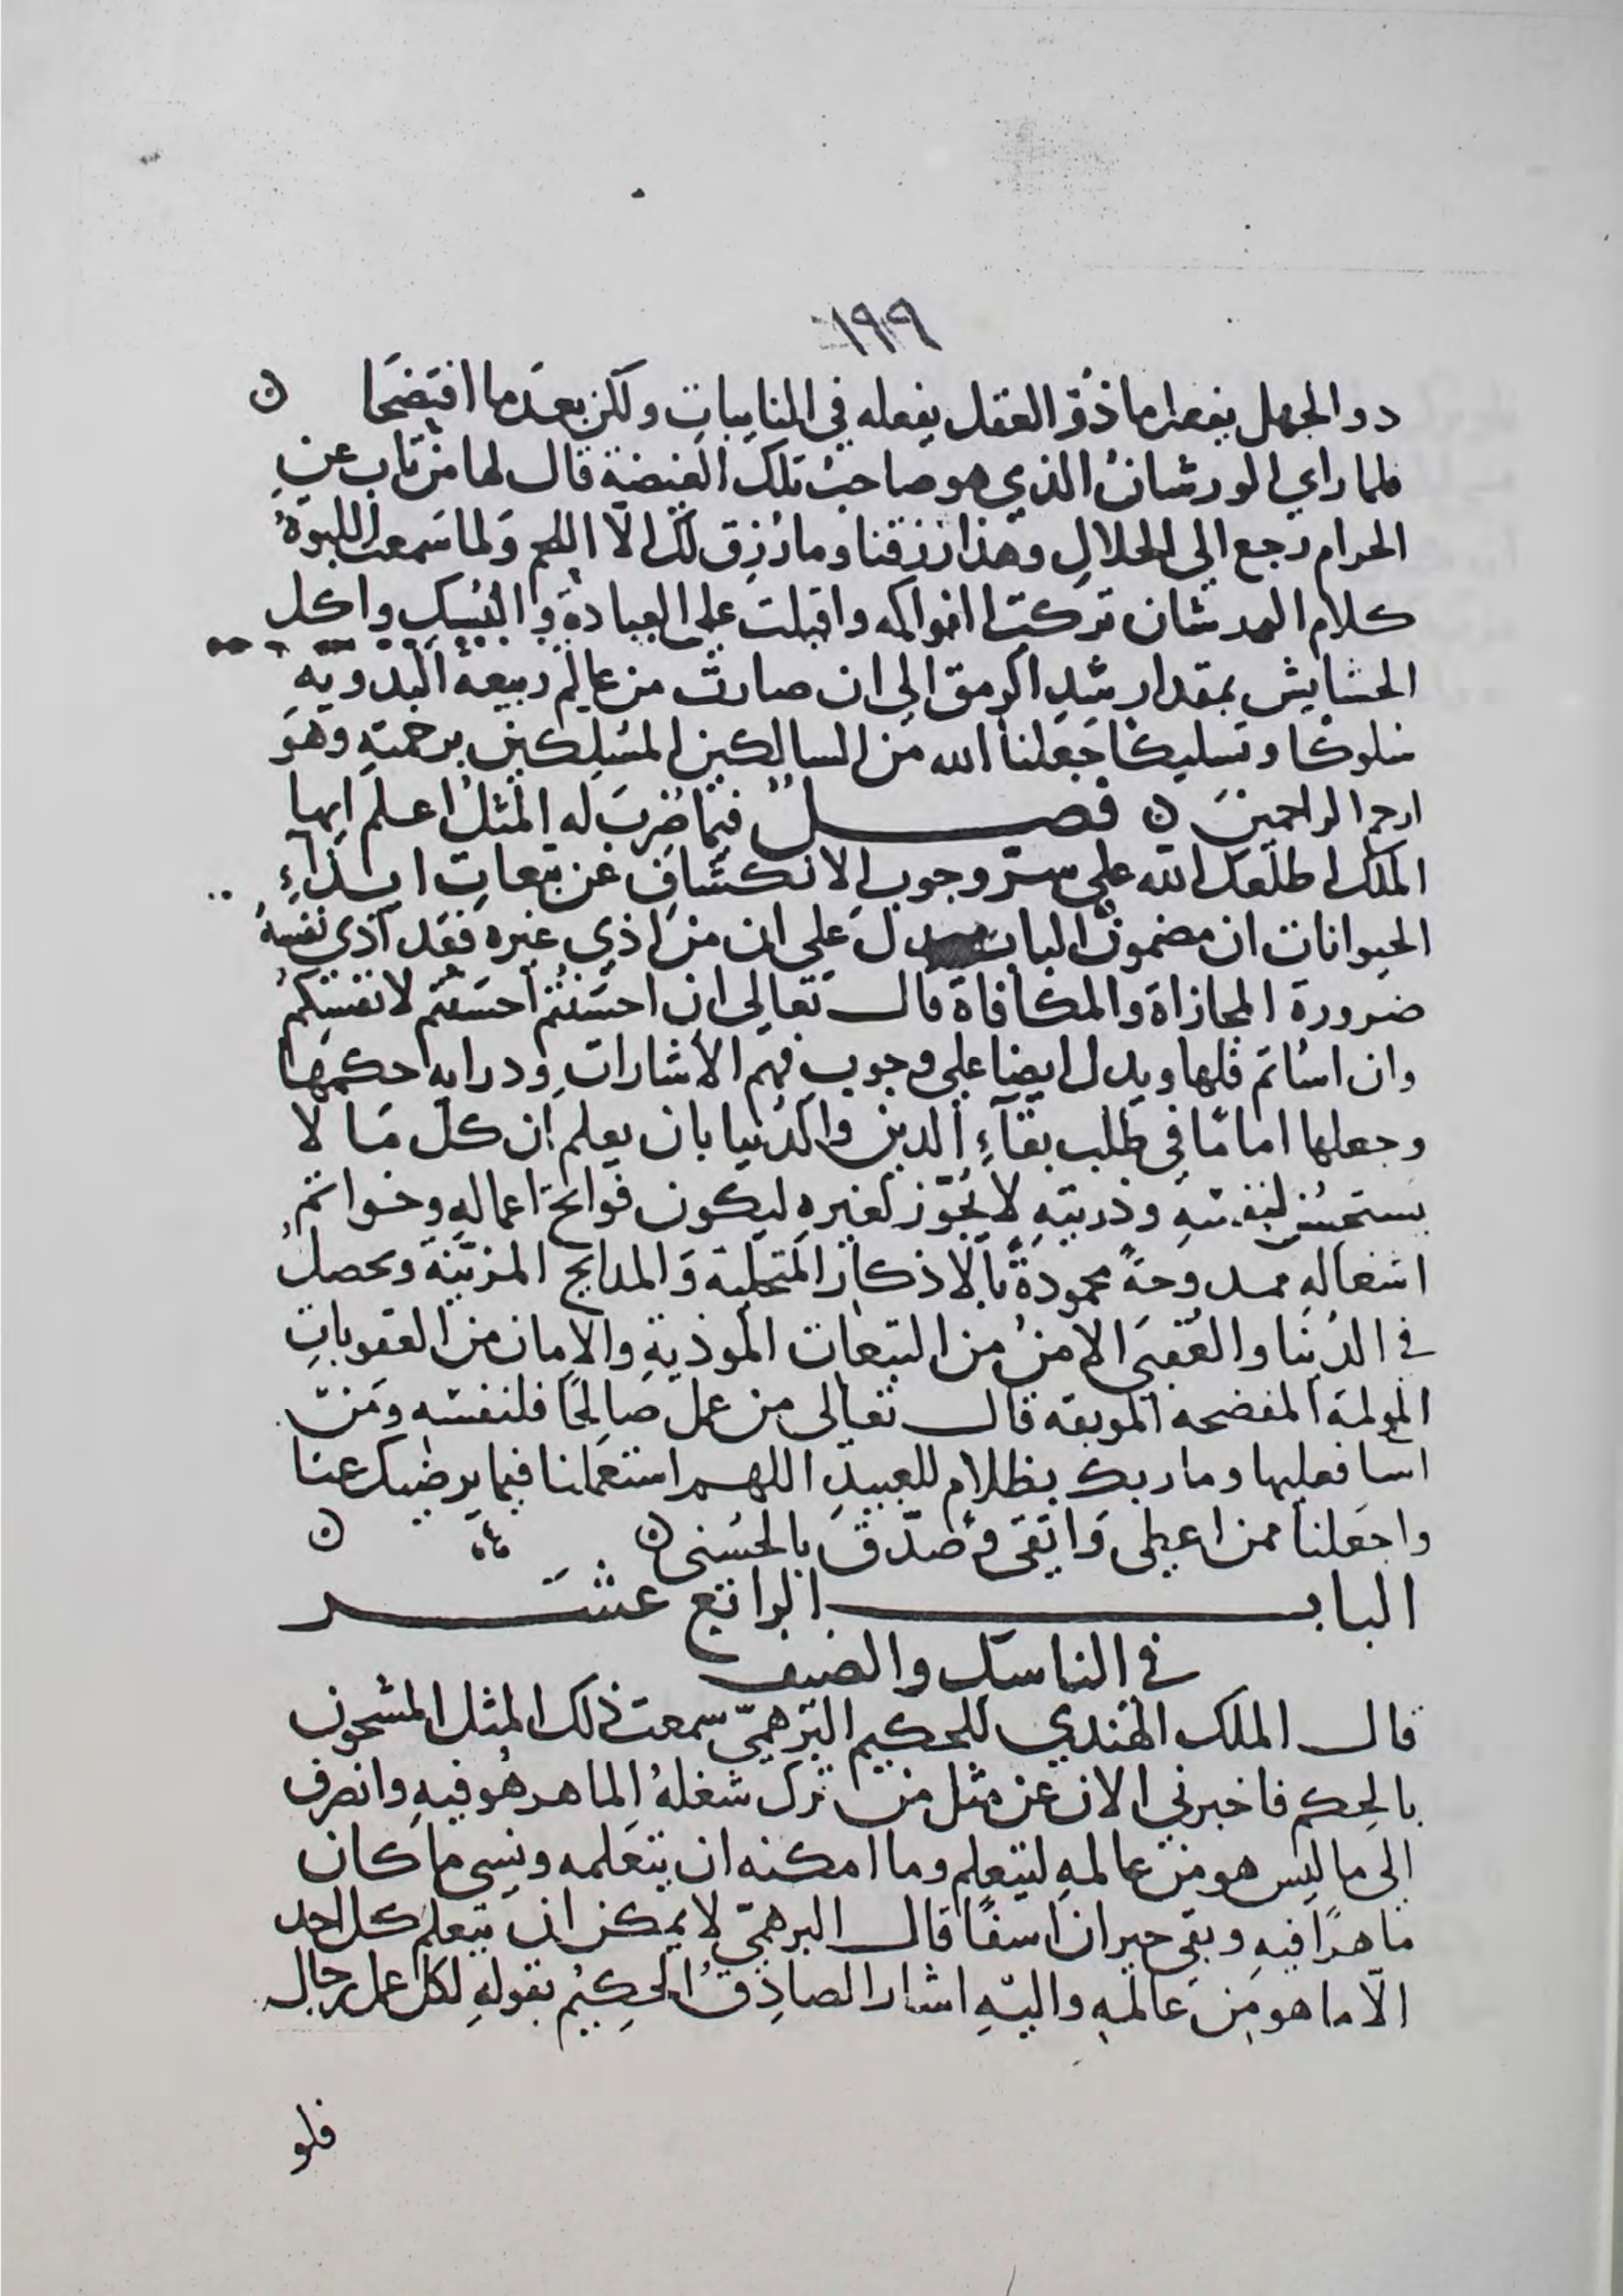 ١٩٩
ذو الجهل يفعل ما ذُو العقل يفعله في النايبات ولكن بعد ما افتضحا ن
فلما راي الورشانُ الذي هو صاحبُ تلك الغيضة قال لها من تاب عن
الحرام رجع الي الحلالِ وهذا رزقنا وما رُزِق لكِ الّا اللحم وَلما سَمعت اللبوةُ
كلام الورشان تركت الفواكه واقبلت على العبادة والنسك واكل
الحشايش بمقدار سَدِ الرمق الى ان صارت من عالم ربيعة البدويّه
سُلوكًا وتسليكًا جَعلنا الله من السالكين المسلِكين برحمتهِ وهوَ
ارحم الراحمين ن فصل فيما ضُرِبَ له المثلُ اعلم ايها
الملك اطلعك الله على سرّ وجوبِ الانكشافِ عن تبعاتِ ايذآءِ
الحيوانات ان مضمونَ الباب يدل على ان من اذي غيره فقد آذي نفسهُ
ضرورة المجازاة والمكافاة قال تعالى ان احسَنتُم احسَنتم لانفسِكمُ
وان اساتم فلها ويدل ايضا على وجوبِ فهم الاشاراتِ ودرايه احكمها
وجعلها امامًا في طلب بقآءِ الدين والدُنيا بان يعلم ان كلّ مَا لا
يستحسن لنفسهِ وذريتهِ لا يُجوّز لغيرهِ ليكون فواتح اعمالهِ وخواتم
اشغالهِ ممدوحةً محمودةً بالاذكار المتحليّة والمدايح المزيّنة ويحصلُ
في الدُنيا والعُقبَى الامنُ من التبعات الموذيةِ والامان من العقوباتِ
المولمة المفضحه الموبقه قال تعالى من عمل صالحًا فلنفسه ومَن
اسا فعليها وما ربك بظلام للعبيدِ اللهم استعملنا فيما يرضيك عنا
واجعَلنا ممن اعطى وَاتقى وصَدّقَ بالحُسنى ن ن
الباب الرابع عشر
في الناسك والضيف
قال الملك الهندي للحكيم البرهميّ سمعت ذلك المثل المشحون
بالحِكم فاخبرني الان عن مثل من ترك شغلهُ الماهر هُو فيهِ وانصرف
الى ما ليس هو من عالمهِ ليتعلم وما امكنه ان يتعلمه ونسِي ما كان
ماهرًا فيهِ وبقى حيران اسفًا قال البرهميّ لا يمكن ان يتعلم كل احد
الّا ما هو من عالمهِ واليهِ اشار الصادقُ الحكيمُ بقولهِ لكل عمل رجال
فلو